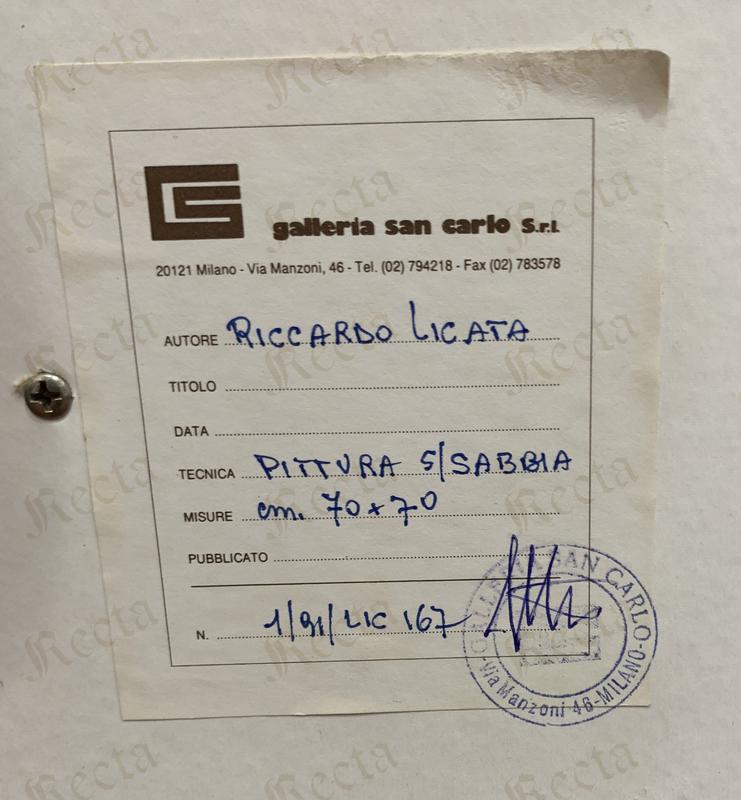 galleria san carlo S.r.l.
20121 Milano - Via Manzoni, 46 - Tel. (02) 794218 - Fax (02) 783578
AUTORE RICCARDO LICATA
TITOLO
DATA
TECNICA PITTURA S/SABBIA
MISURE cm. 70x70
PUBBLICATO
N. 1/91/LIC 167
GALLERIA SAN CARLO
Via Manzoni 46 - MILANO -
Recta